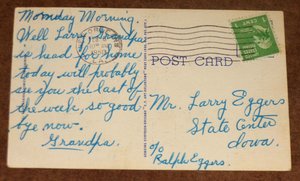 Monday Morning.
Well Larry, Grandpa
is headed home
today will probably
see you the last of
the week, so good
bye now.
Grandpa.
POST CARD
Mr. Larry Eggers
State Center
Iowa.
c/o
Ralph Eggers.